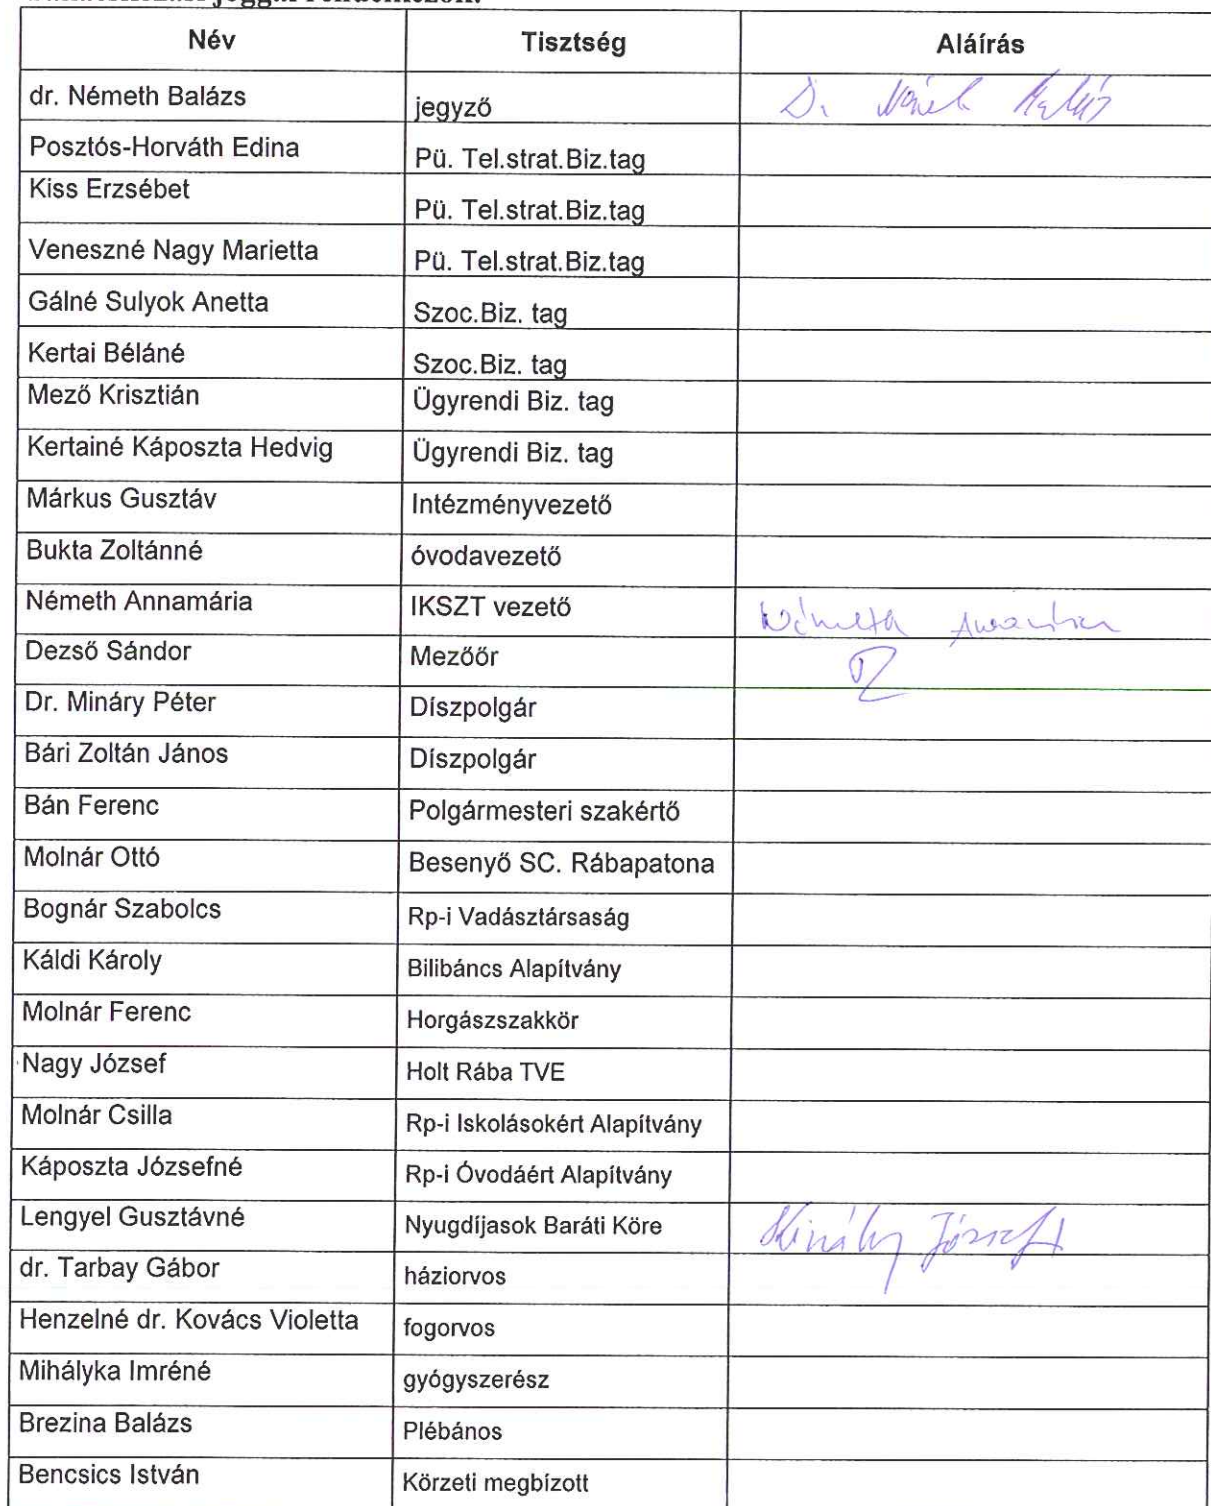 joggal rendelkezők:
Név Tisztség Aláírás
dr. Németh Balázs jegyző Dr. Németh Balázs
Posztós-Horváth Edina Pü. Tel.strat.Biz.tag
Kiss Erzsébet Pü. Tel.strat.Biz.tag
Veneszné Nagy Marietta Pü. Tel.strat.Biz.tag
Gálné Sulyok Anetta Szoc.Biz. tag
Kertai Béláné Szoc.Biz. tag
Mező Krisztián Ügyrendi Biz. tag
Kertainé Káposzta Hedvig Ügyrendi Biz. tag
Márkus Gusztáv Intézményvezető
Bukta Zoltánné óvodavezető
Németh Annamária IKSZT vezető Németh Annamária
Dezső Sándor Mezőőr
Dr. Mináry Péter Díszpolgár
Bári Zoltán János Díszpolgár
Bán Ferenc Polgármesteri szakértő
Molnár Ottó Besenyő SC. Rábapatona
Bognár Szabolcs Rp-i Vadásztársaság
Káldi Károly Bilibáncs Alapítvány
Molnár Ferenc Horgászszakkör
Nagy József Holt Rába TVE
Molnár Csilla Rp-i Iskolásokért Alapítvány
Káposzta Józsefné Rp-i Óvodáért Alapítvány
Lengyel Gusztávné Nyugdíjasok Baráti Köre Király József
dr. Tarbay Gábor háziorvos
Henzelné dr. Kovács Violetta fogorvos
Mihályka Imréné gyógyszerész
Brezina Balázs Plébános
Bencsics István Körzeti megbízott